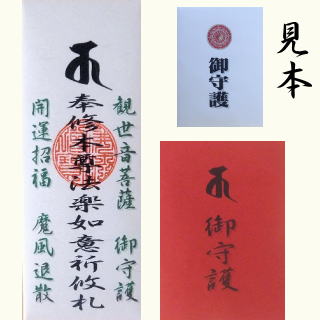 見本
観世音菩薩 御守護
奉修本尊法楽如意祈攸札
開運招福 魔風退散
御守護
御守護